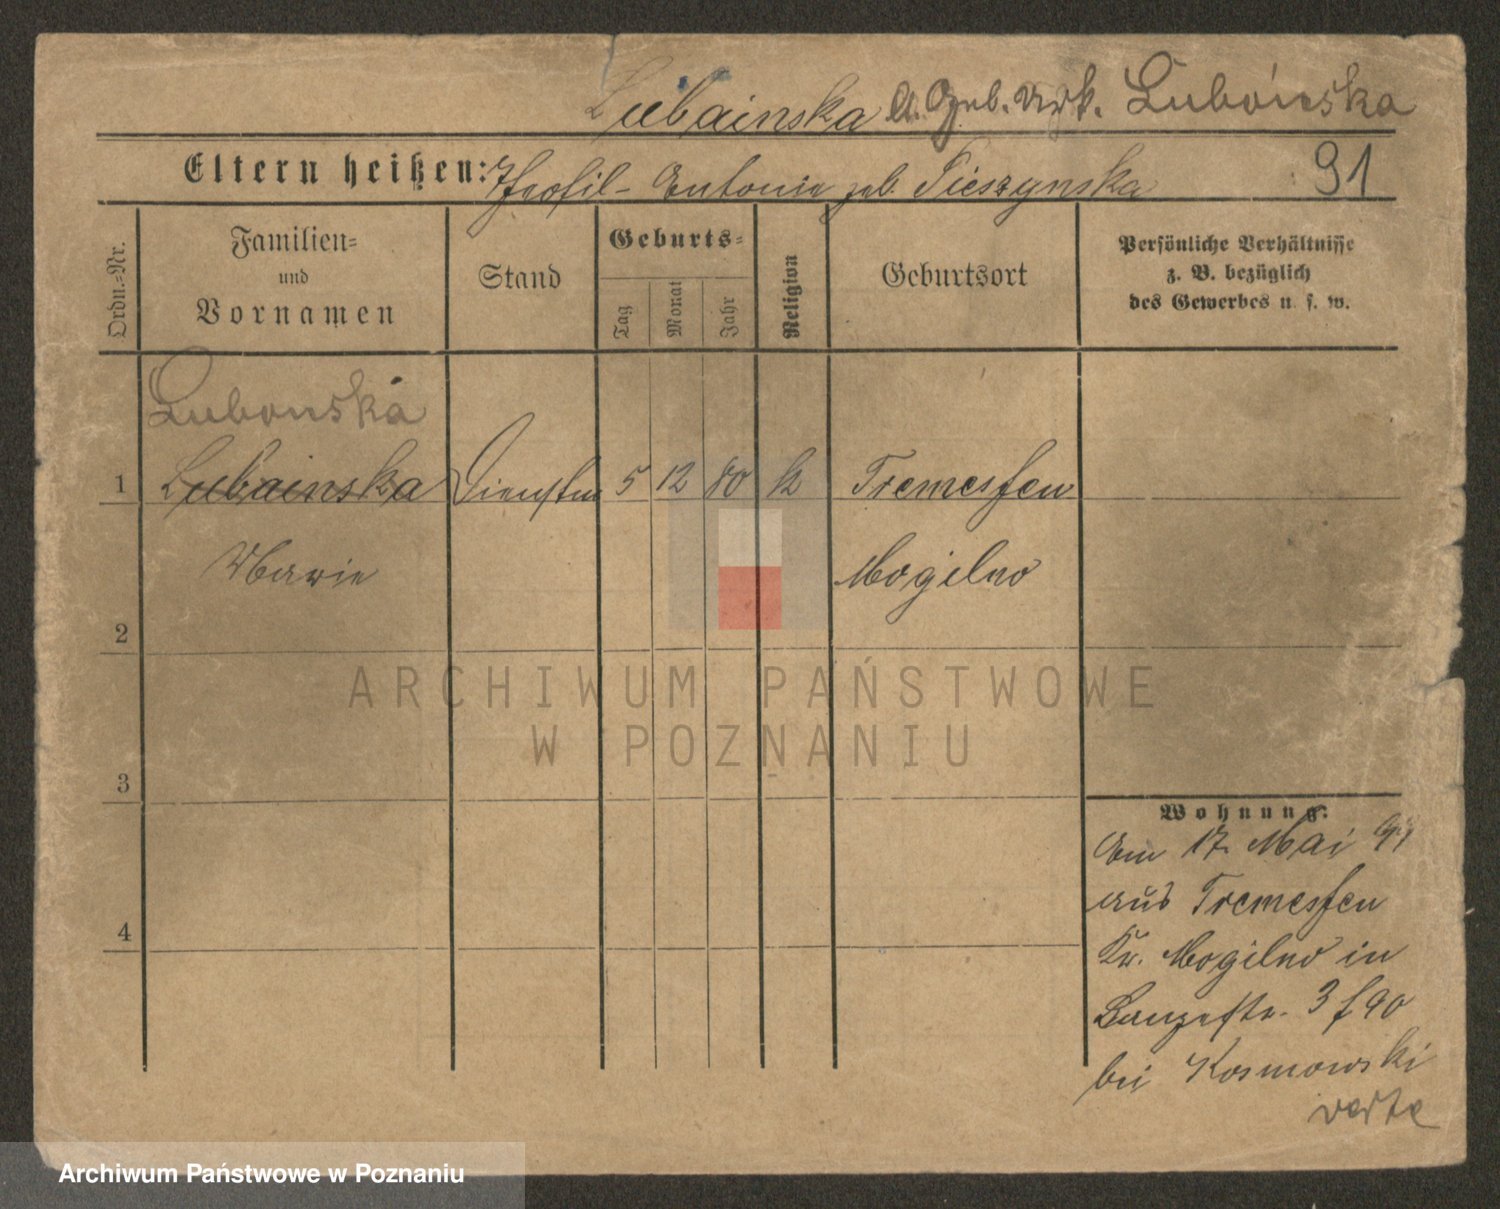 Lubainska lt. Geb. Urk. Lubońska
Eltern heißen: Theofil - Antonie geb. Cieszynska 91
Ordn.=Nr.
Familien=
und
Vornamen
Stand
Geburts=
Tag
Monat
Jahr
Religion
Geburtsort
Persönliche Verhältnisse
z. B. bezüglich
des Gewerbes u. s. w.
Lubońska
1 Lubainska Dienstm 5 12 80 k Tremessen
Marie Mogilno
2
ARCHIWUM PAŃSTWOWE
W POZNANIU
3
Wohnung:
Am 17. Mai
aus Tremessen
4
Kr. Mogilno in
bei Kosmowski
verte
Archiwum Państwowe w Poznaniu